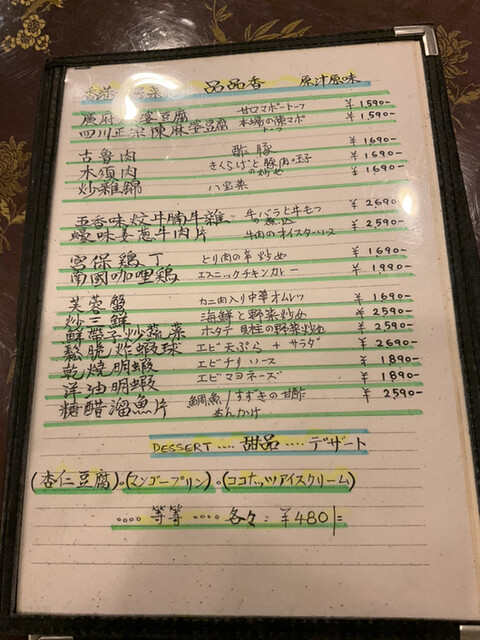 品品香 原汁原味
麻婆豆腐 サロマポートーフ ¥1590-
四川正宗陳麻婆豆腐 本場の陳マポトーフ ¥1590-
古魯肉 酢豚 ¥1690-
木須肉 きくらげと豚肉の玉子の炒め ¥1690-
炒雜錦 八宝菜 ¥1690-
五香味炆牛腩牛雜 牛バラと牛モツの煮込 ¥2690-
蠔味姜葱牛肉片 牛肉のオイスターソース ¥2590-
宮保鶏丁 とり肉の辛炒め ¥1690-
南國咖哩鶏 エスニックチキンカレー ¥1990-
芙蓉蟹 カニ肉入り中華オムレツ ¥1690-
炒三鮮 海鮮と野菜炒め ¥2590-
鮮帶子炒蔬菜 ホタテ貝柱の野菜炒め ¥2590-
鬆脆炸蝦球 エビ天ぷら + サラダ ¥2690-
乾燒明蝦 エビチリソース ¥1890-
洋油明蝦 エビマヨネーズ ¥1890-
糖醋溜魚片 鯛魚/すずきの甘酢あんかけ ¥2590-
DESSERT .... 甜品 .... デザート
(杏仁豆腐)。(マンゴープリン)。(ココナッツアイスクリーム)
.... 等等 .... 各々: ¥480